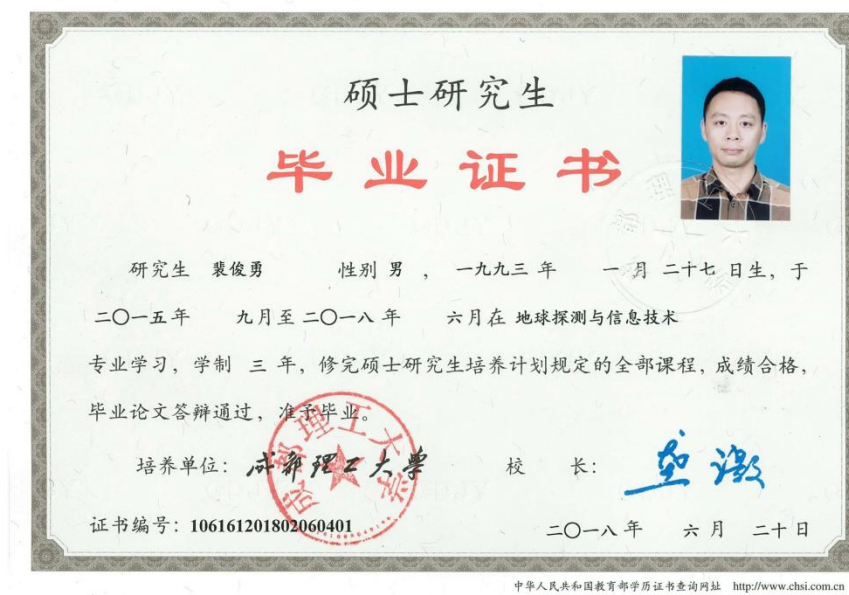 硕士研究生
毕业证书
研究生 裴俊勇 性别 男 ， 一九九三 年 一 月 二十七 日生，于
二〇一五年 九月至 二〇一八 年 六月在 地球探测与信息技术
专业学习，学制 三 年，修完硕士研究生培养计划规定的全部课程，成绩合格，
毕业论文答辩通过，准予毕业。
培养单位：成都理工大学 校 长：
成都理工大学
证书编号：106161201802060401
二〇一八 年 六 月 二十 日
中华人民共和国教育部学历证书查询网址 http://www.chsi.com.cn